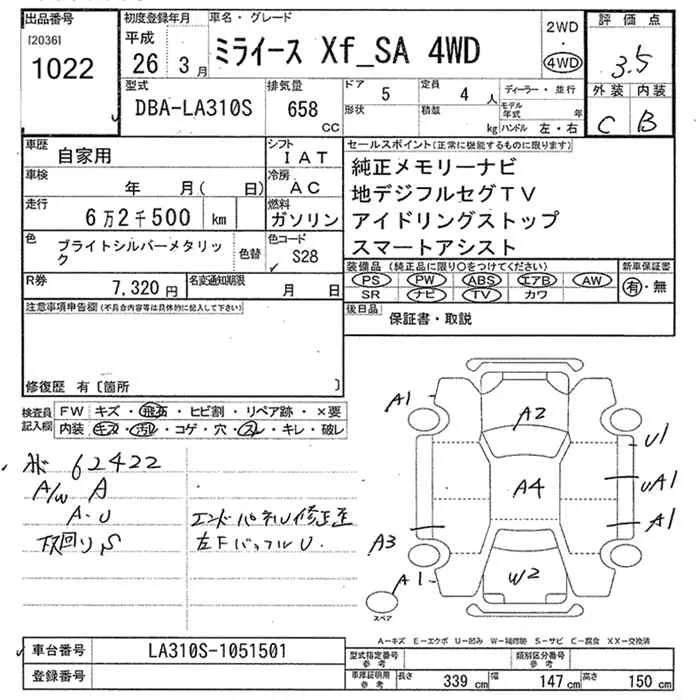 出品番号
[2036]
1022
初度登録年月
平成
26年 3月
車名・グレード
ミライース Xf_SA 4WD
2WD
・
4WD
評価点
3.5
外装 内装
C B
型式
DBA-LA310S
排気量
658
CC
ドア 5
定員 4人
ディーラー・並行
形状
積載 kg
モデル年式 年
ハンドル 左・右
車歴
自家用
シフト
IAT
車検
年 月( 日)
冷房
AC
走行
6万2千500 km
燃料
ガソリン
色
ブライトシルバーメタリック
色替
色コード
S28
R券
7,320円
名変通知期限
月 日
セールスポイント(正常に機能するものに限ります)
純正メモリーナビ
地デジフルセグTV
アイドリングストップ
スマートアシスト
装備品(純正品に限り○をつけてください)
PS PW ABS エアB AW
SR ナビ TV カワ
新車保証書
有・無
後日品
保証書・取説
注意事項申告欄(不具合内容等は具体的に記入して下さい)
修復歴 有〔箇所 〕
検査員記入欄
FW キズ・飛石・ヒビ割・リペア跡・×要
内装 キズ・汚レ・コゲ・穴・スレ・キレ・破レ
62422
A/W A
A-U
下回りS
エンドパネルU修正歪
左Fバッフル U.
A1
A2
U1
A4
UA1
A1
A3
A1
W2
スペア
A-キズ E-エクボ U-凹み W-補修跡 S-サビ C-腐食 XX-交換済
車台番号
LA310S-1051501
登録番号
型式指定番号
参考
類別区分番号
参考
車庫証明用
参考
長さ 339 cm
幅 147 cm
高さ 150 cm